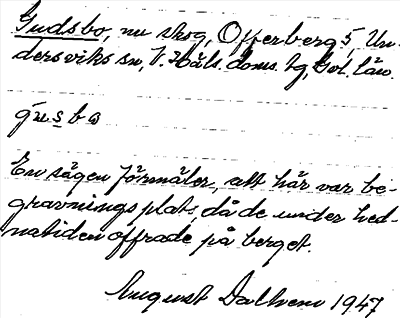 Gudsbo, nu skog, Offerberg 5, Un-
dersviks sn, V. Häls. doms. hg, Gvl. län.
gu̇sbω
En sägen förmäler, att här var be-
gravningsplats, då de under hed-
natiden offrade på berget.
August Dalhem 1947